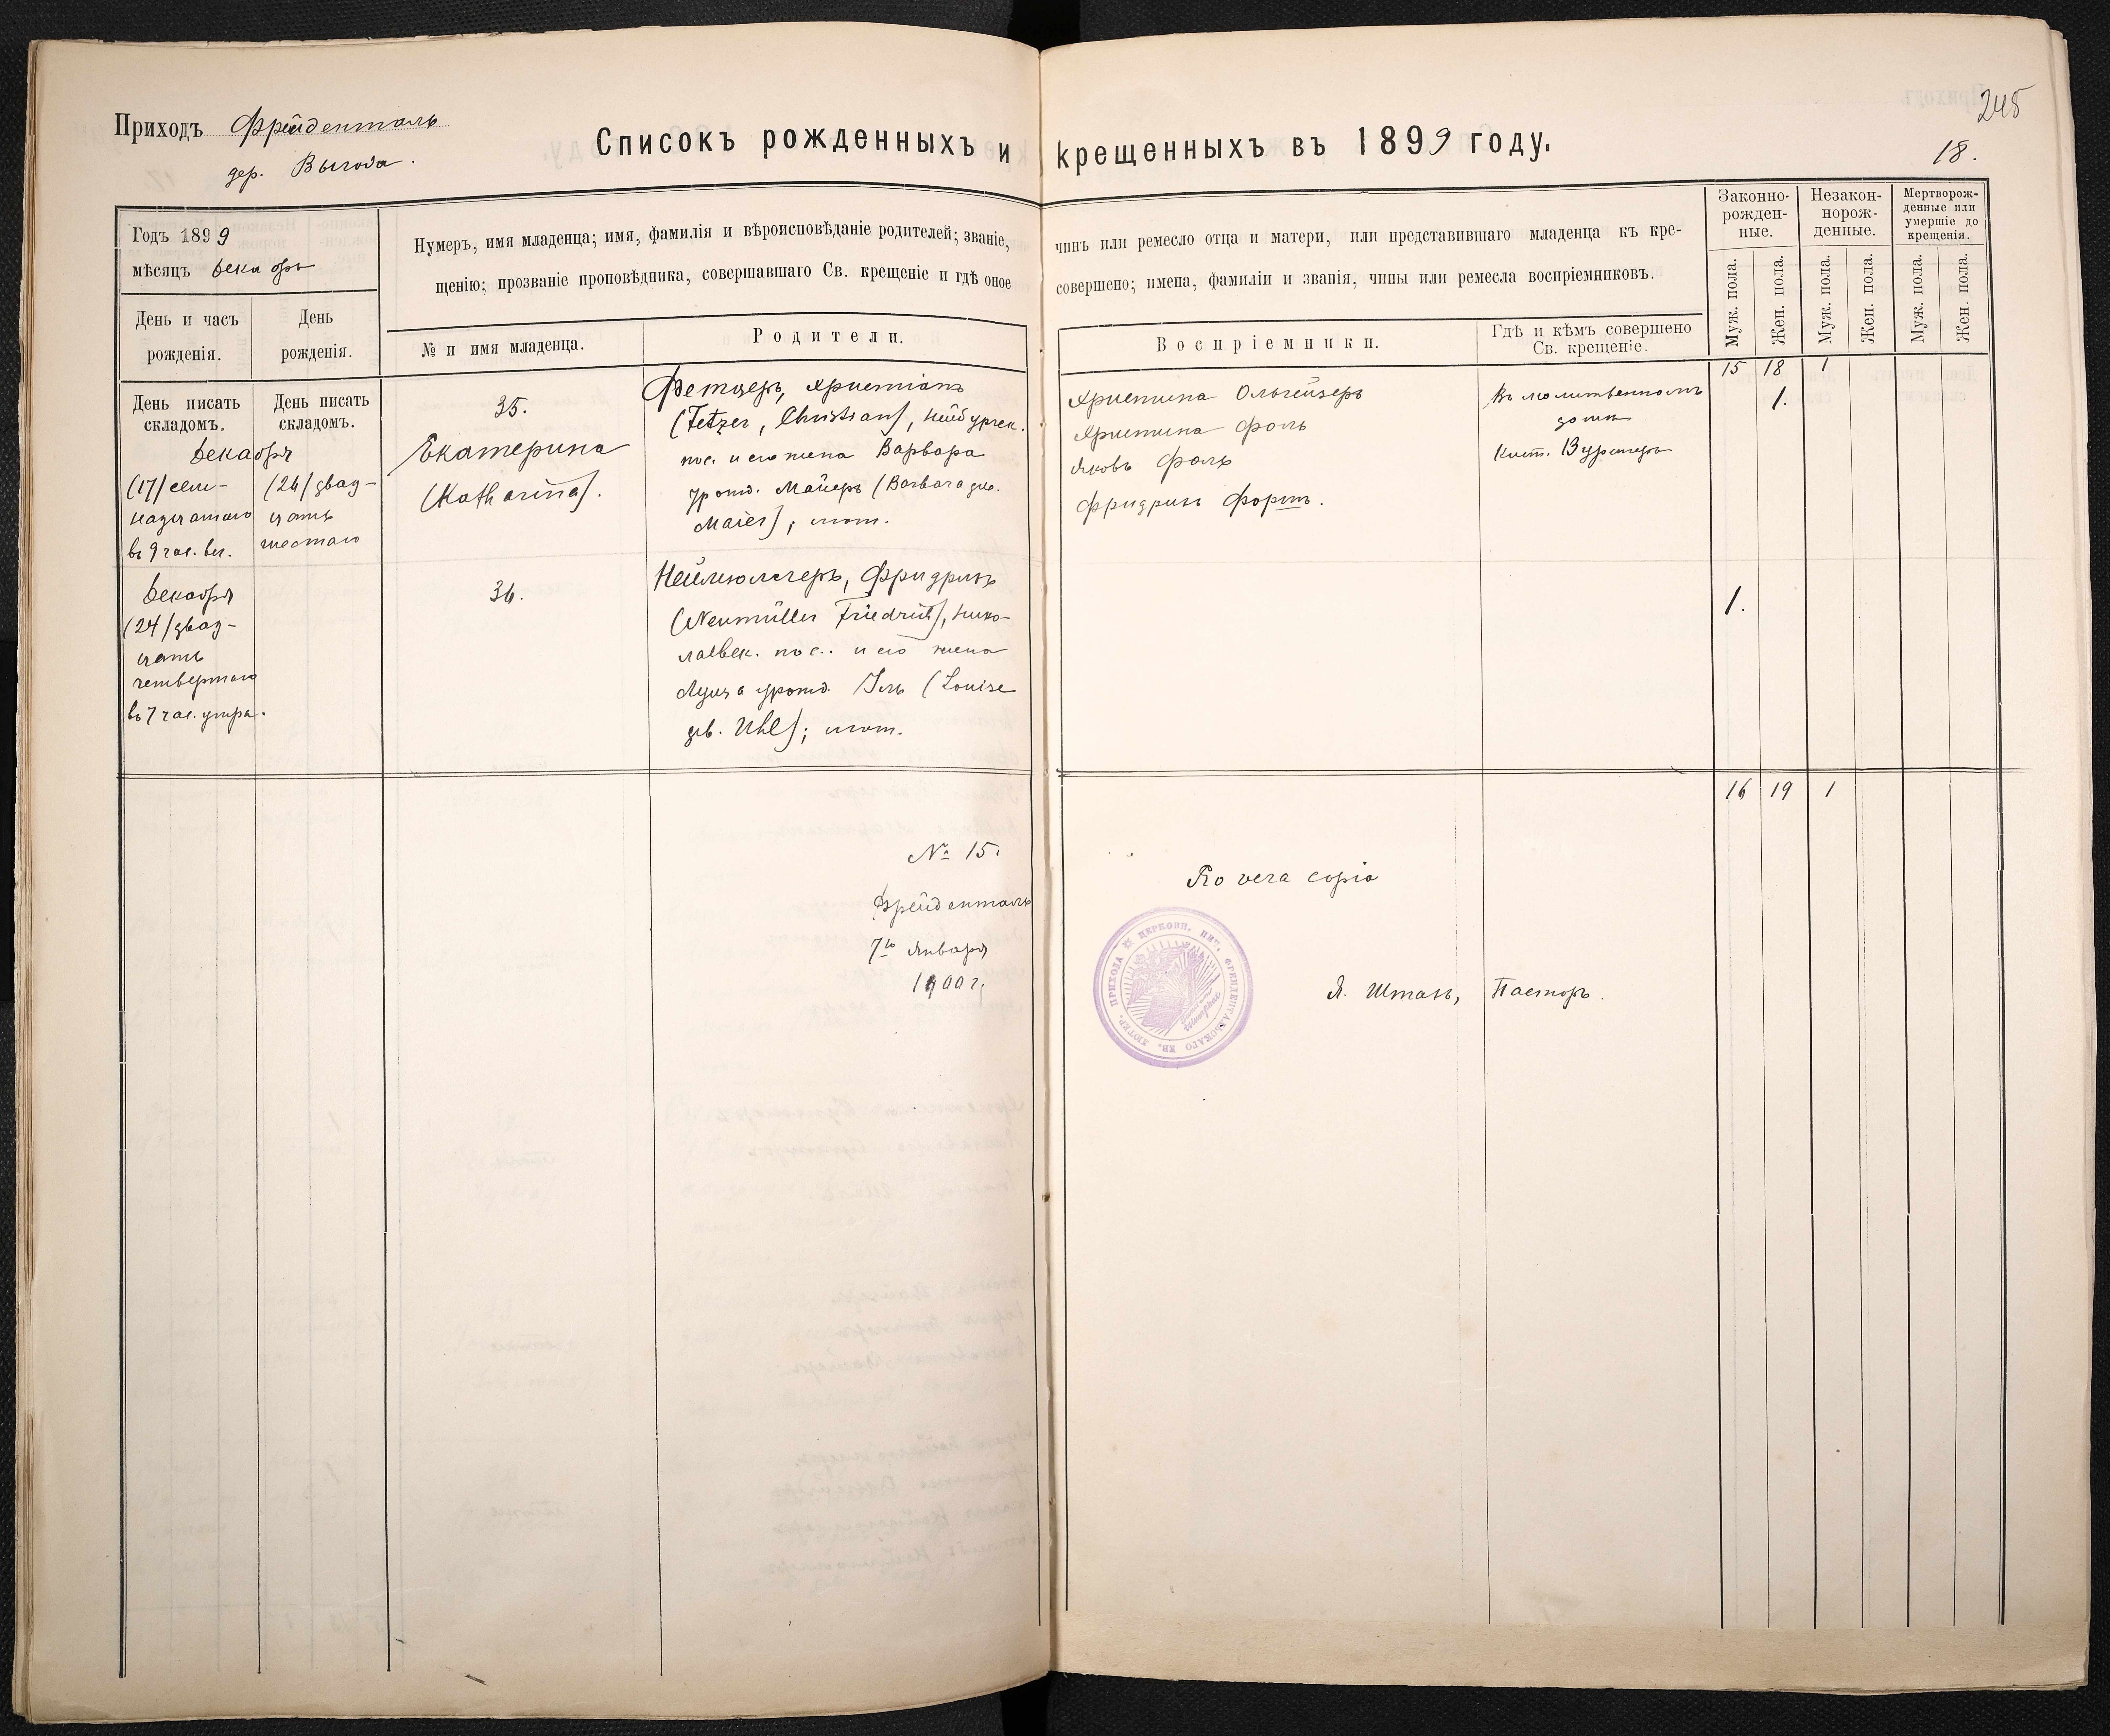 Приходъ Фрейденталь
дер. Выгода.
Списокъ рожденныхъ и крещенныхъ въ 1899 году.
245
18.
Годъ 1899
мѣсяцъ декабрь
Нумеръ, имя младенца; имя, фамилія и вѣроисповѣданіе родителей; званіе, чинъ или ремесло отца и матери, или представившаго младенца къ кре-
щенію; прозваніе проповѣдника, совершавшаго Св. крещеніе и гдѣ оное совершено; имена, фамиліи и званія, чины или ремесла воспріемниковъ.
Законно-
рожден-
ные.
Незакон-
норож-
денные.
Мертворож-
денные или
умершіе до
крещенія.
Муж. пола.
Жен. пола.
Муж. пола.
Жен. пола.
Муж. пола.
Жен. пола.
День и часъ
рожденія.
День
рожденія.
№ и имя младенца.
Родители.
Воспріемники.
Гдѣ и кѣмъ совершено
Св. крещеніе.
15 18 1
День писать
складомъ.
День писать
складомъ.
Декабря
(17) сем-
надцатаго
въ 9 час. веч.
(26) двад-
цать
шестаго
35.
Екатерина
(Katharina).
Фетцеръ, Христіанъ
(Fetzer, Christian), Нейбургск.
пос. и его жена Варвара
урожд. Майеръ (Barbara geb.
Maier); лют.
Христина Ольгейзеръ
Христина Фоль
Яковъ Фоль
Фридрихъ Фортъ.
Въ молитвенномъ
домѣ
Кист. Вурстеръ
1.
Декабря
(24) двад-
цать
четвертаго
въ 7 час. утра.
36.
Неймюллеръ, Фридрихъ
(Neumüller Friedrich), Нико-
лаевск. пос. и его жена
Луиза урожд. Уль (Louise
geb. Uhl); лют.
1.
16 19 1
№ 15.
Фрейденталь
7го Января
1900 г.
Pro vera copia
Я. Штахъ, Пасторъ.